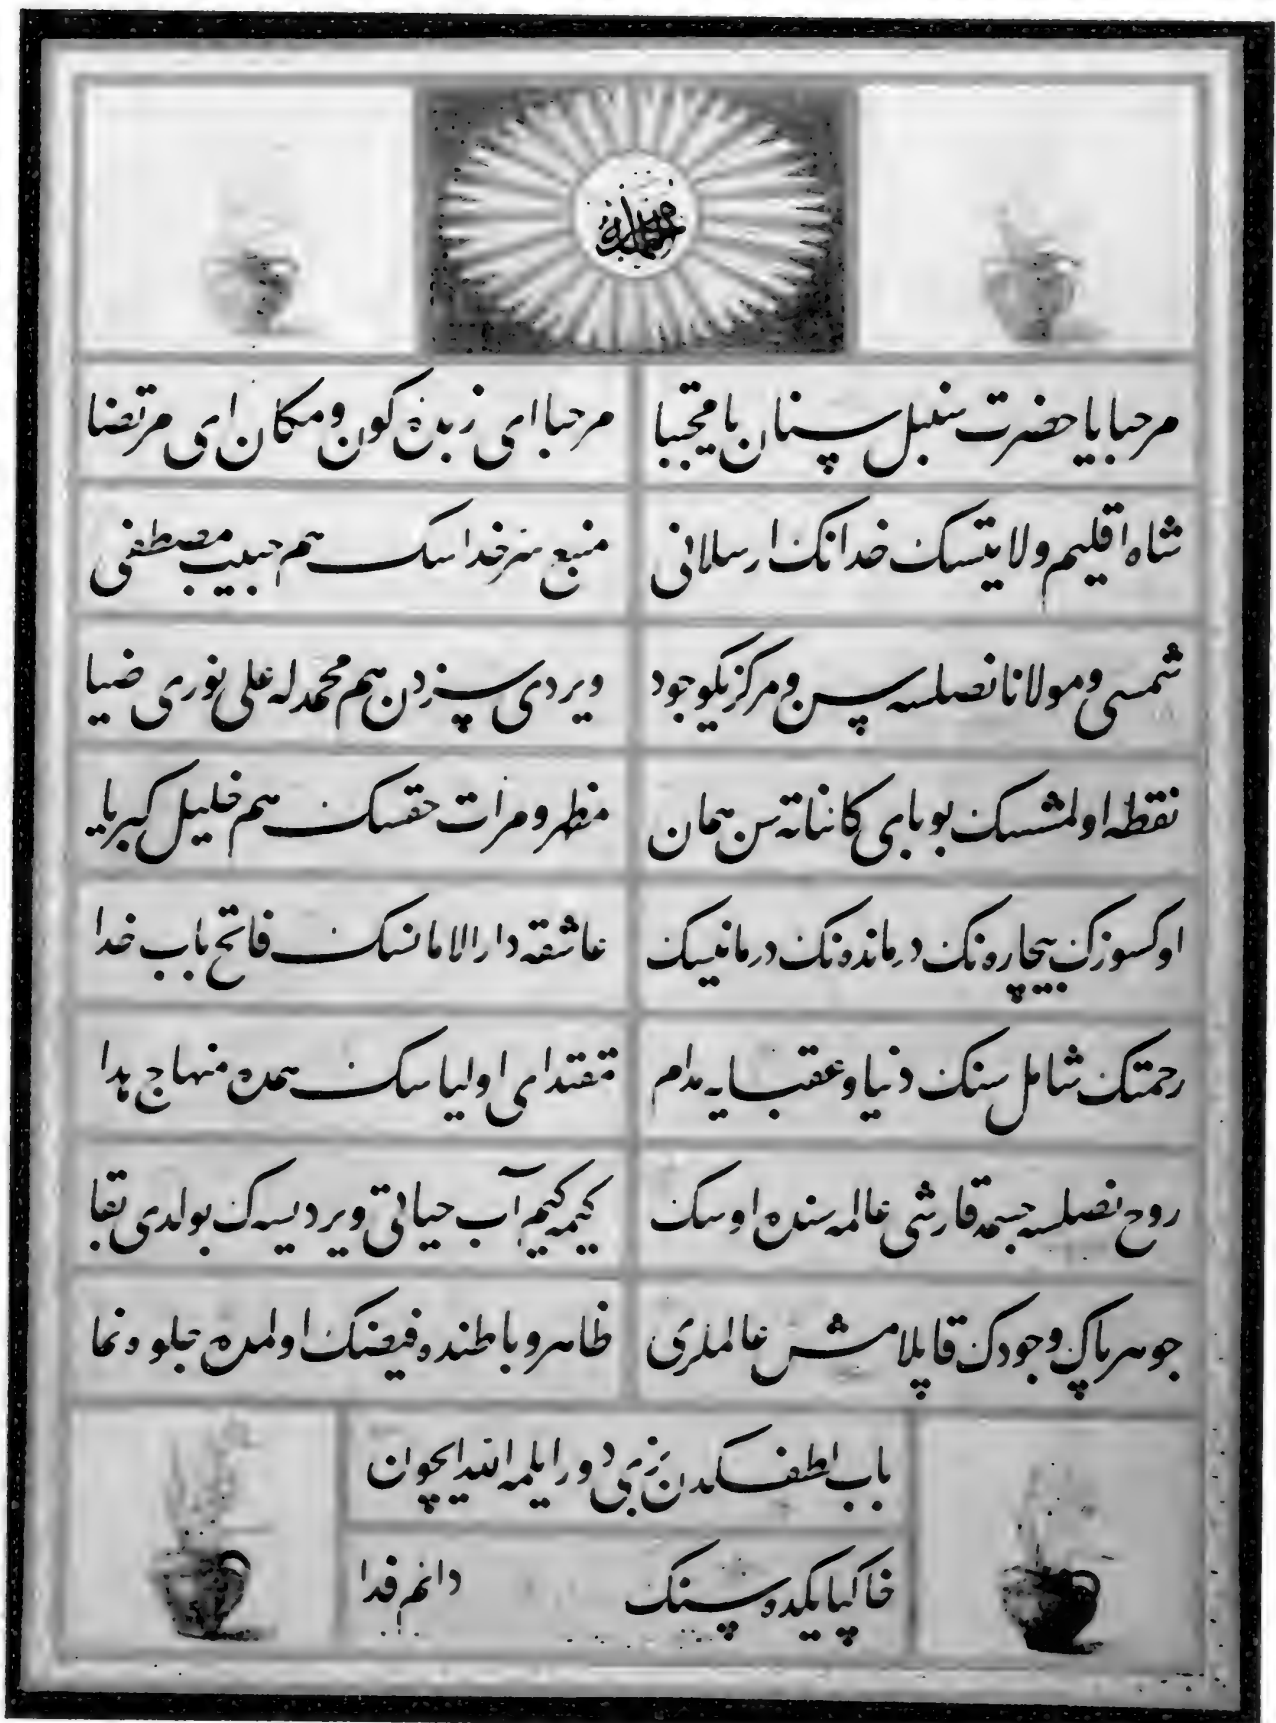 مرحبا یا حضرت سنبل سنان یا مجتبا
مرحبا ای زبدهٔ کون و مکان ای مرتضا
شاه اقلیم ولایتسک خدانک ارسلانی
منبع سر خداسک هم حبیب مصطفی
شمسی و مولانا نصلسه سن و مرکز بگو جود
ویردی سزدن هم محمد له علی نوری ضیا
نقطه اولمشسک بو بای کائناته سن همان
مظهر و مرات حقسک هم خلیل کبریا
اوکسوزک بیچاره نک درمانده نک درمانیسک
عاشقه دار الامانسک فاتح باب خدا
رحمتک شامل سنک دنیا و عقبایه مدام
مقتدای اولیاسک همده منهاج هدا
روح نصلسه جسمه قارشی عالمه سنده اوسک
کیمه کیم آب حیاتی ویردیسه ک بولدی بقا
جوهر پاک وجودک قاپلامش عالملری
ظاهر و باطنده فیضک اولمده جلوه نما
باب لطفکدن بزی دور ایلمه ایچون
خاکپایکده سنک دائم فدا